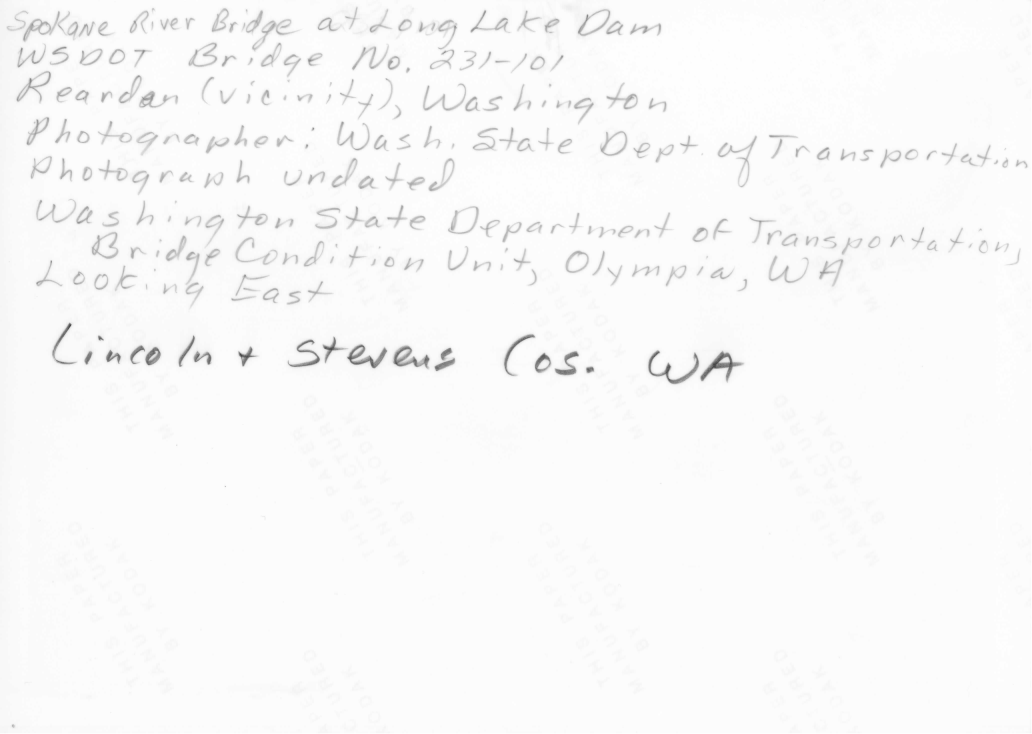 Spokane River Bridge at Long Lake Dam
WSDOT Bridge No. 231-101
Reardan (vicinity), Washington
Photographer: Wash. State Dept. of Transportation
Photograph undated
Washington State Department of Transportation,
Bridge Condition Unit, Olympia, WA
Looking East
Lincoln + Stevens Cos. WA
THIS PAPER
MANUFACTURED
BY KODAK